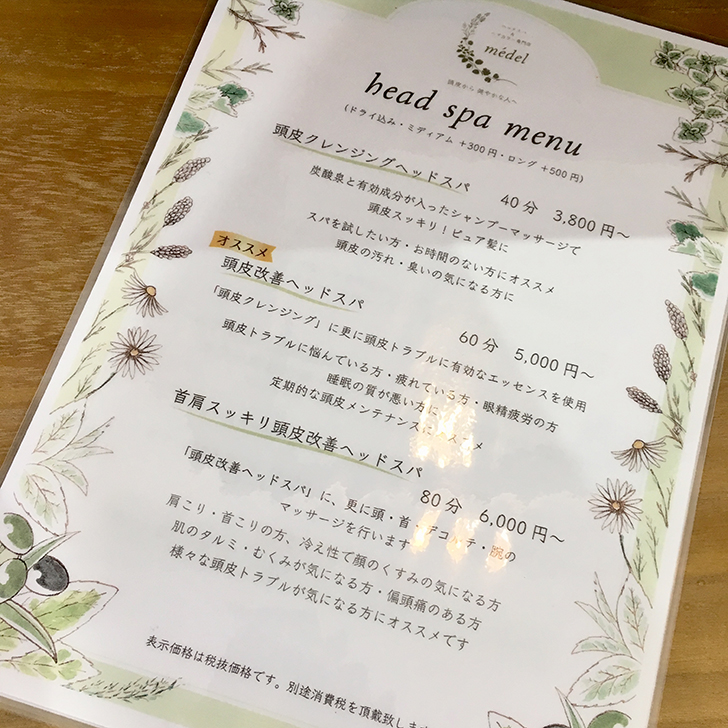 médel
頭皮から 健やかな人へ
head spa menu
(ドライ込み・ミディアム +300円・ロング +500円)
頭皮クレンジングヘッドスパ
40分 3,800円~
炭酸泉と有効成分が入ったシャンプーマッサージで
頭皮スッキリ!ピュア髪に
スパを試したい方・お時間のない方にオススメ
頭皮の汚れ・臭いの気になる方に
オススメ
頭皮改善ヘッドスパ
60分 5,000円~
「頭皮クレンジング」に更に頭皮トラブルに有効なエッセンスを使用
頭皮トラブルに悩んでいる方・疲れている方・眼精疲労の方
睡眠の質が悪い方に
定期的な頭皮メンテナンスにオススメ
首肩スッキリ頭皮改善ヘッドスパ
80分 6,000円~
「頭皮改善ヘッドスパ」に、更に頭・首・デコルテ・腕の
マッサージを行います
肩こり・首こりの方、冷え性で顔のくすみの気になる方
肌のタルミ・むくみが気になる方・偏頭痛のある方
様々な頭皮トラブルが気になる方にオススメです
表示価格は税抜価格です。別途消費税を頂戴致しま